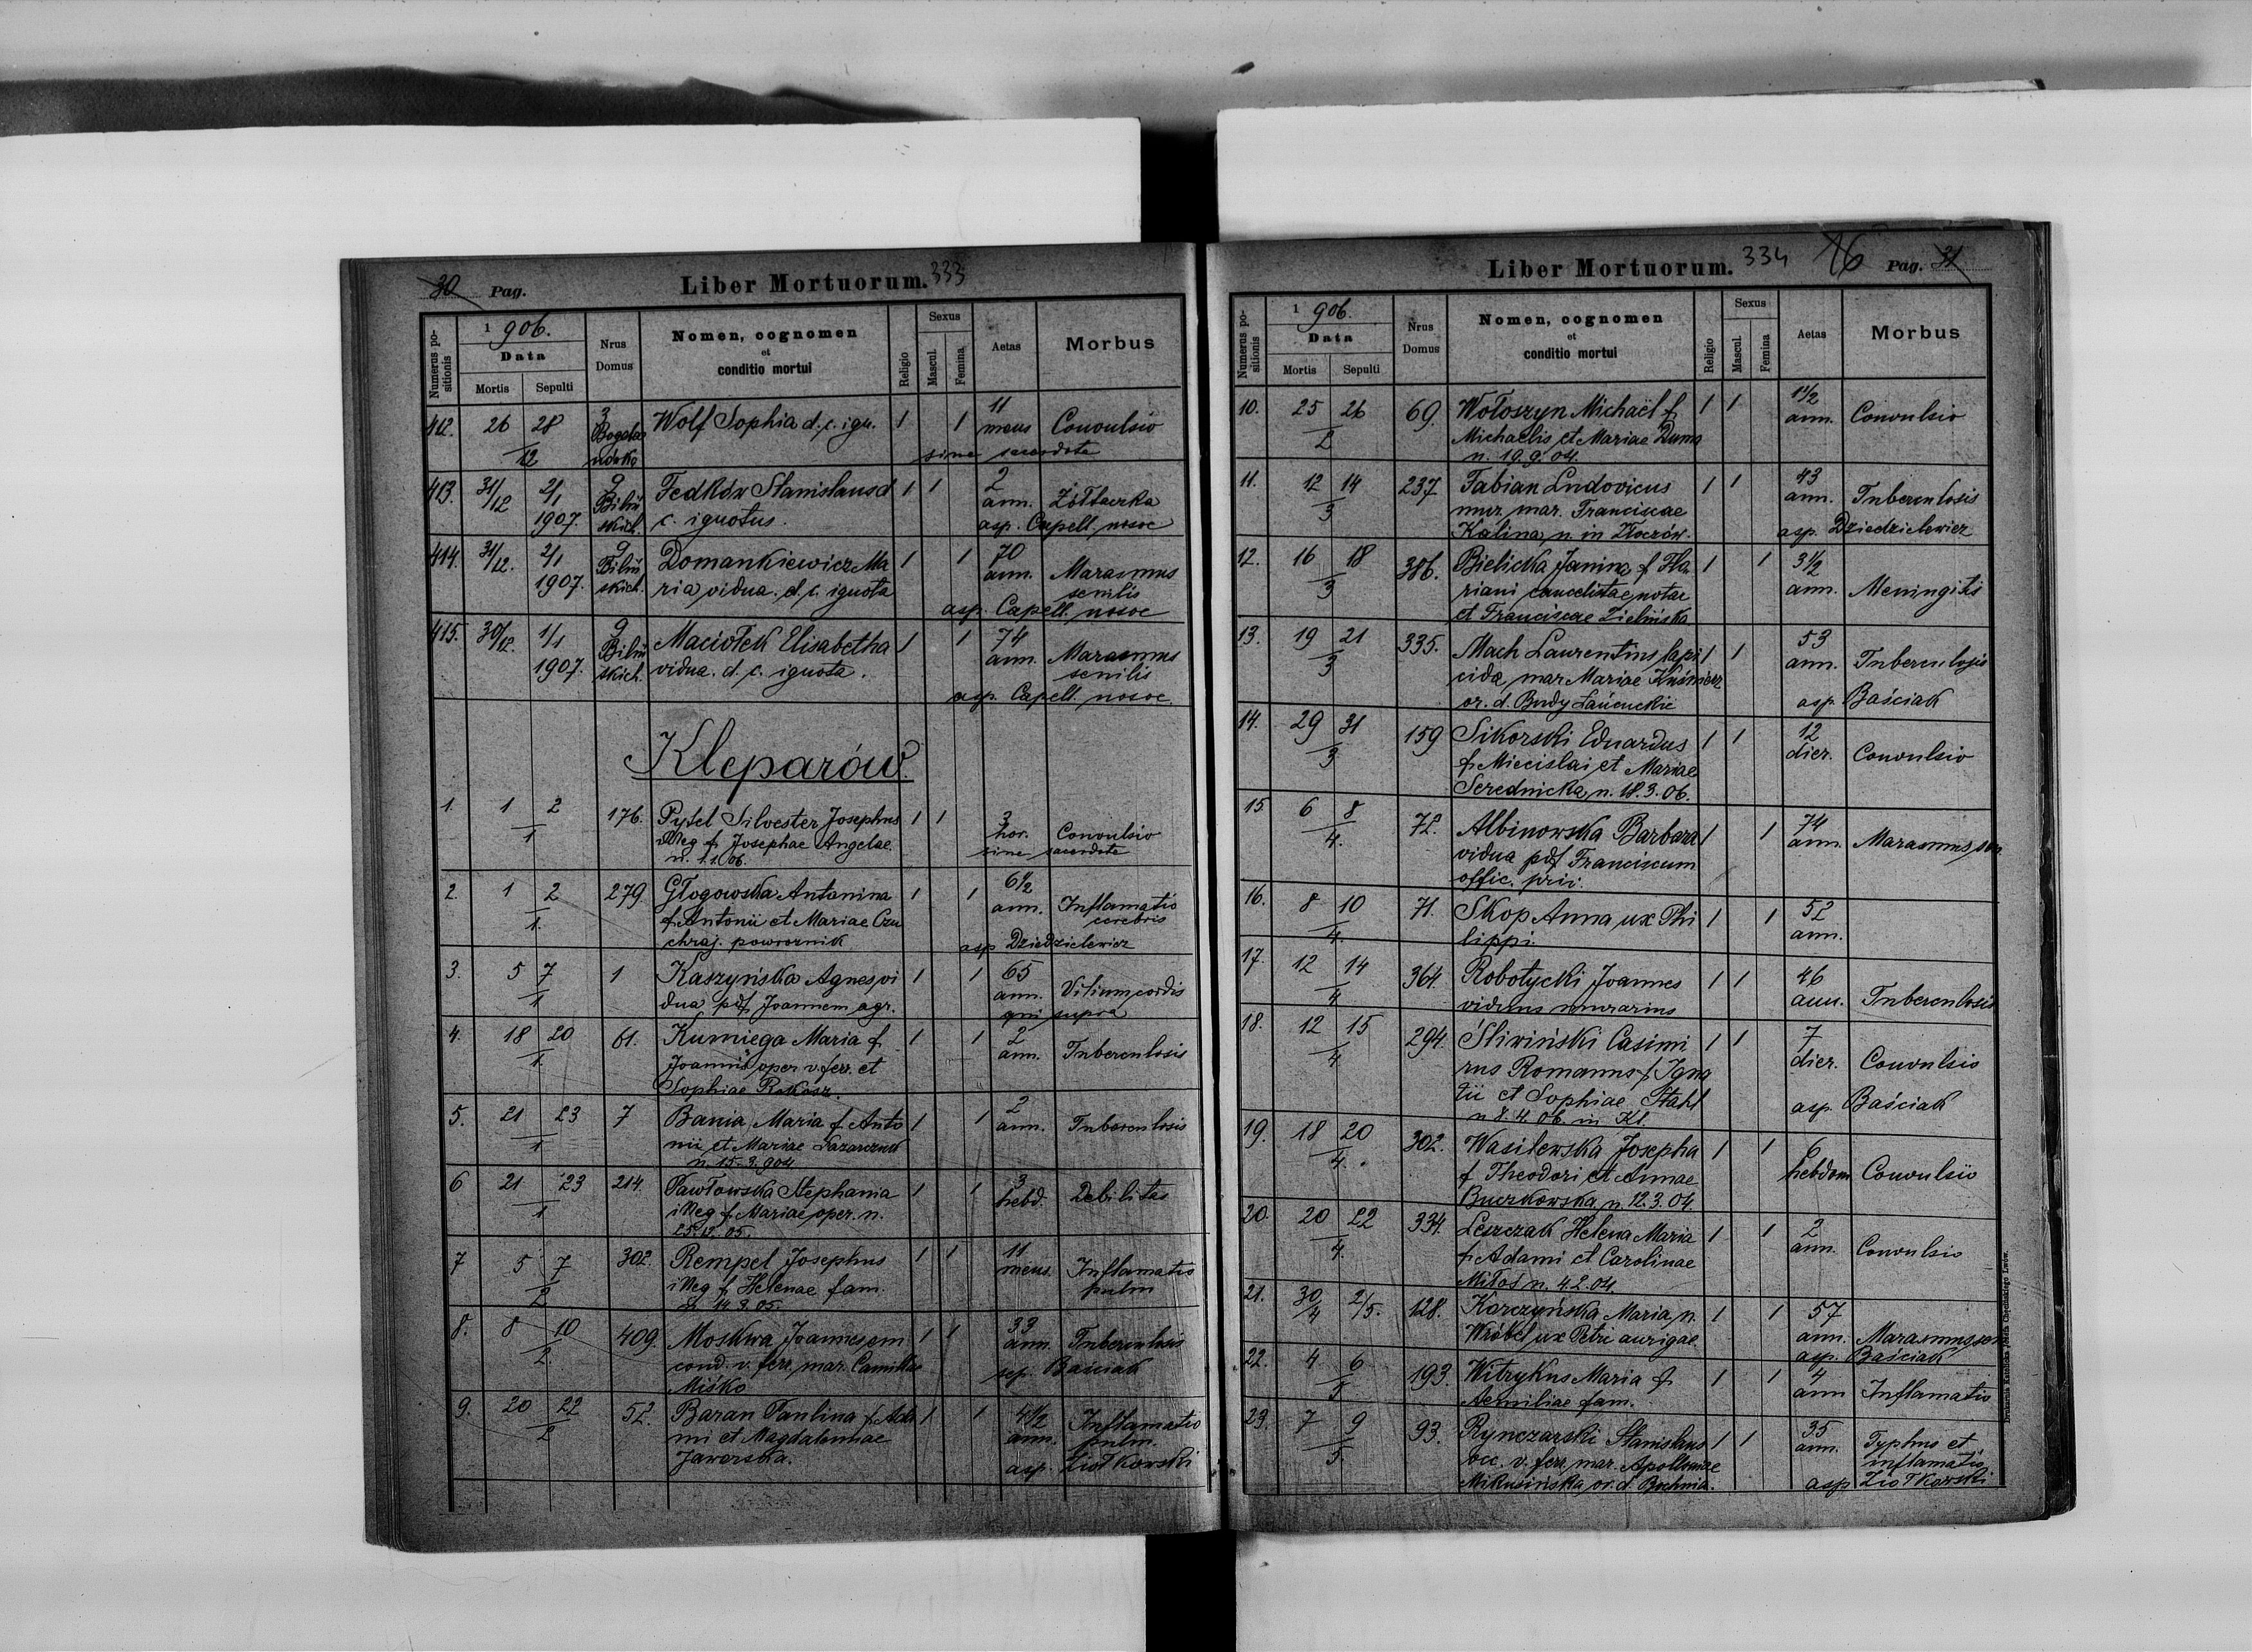 30 Pag. Liber Mortuorum. 333
Numerus positionis
1906.
Data
Mortis Sepulti
Nrus Domus
Nomen, cognomen
et
conditio mortui
Religio
Sexus
Mascul. Femina
Aetas
Morbus
412. 26 28 3 Wolf Sophia d. c. ign. 1 1 11
12 mens Convulsio
sine sacerdote
413. 31/12 2/1 9 Fedków Stanislaus d 1 1 2
1907. Biliń ann. Żółtaczka
skich. c. ignotus. asp. Capell. nosoc
414. 31/12. 2/1 9 Domankiewicz Ma 1 1 70
1907. Biliń ria vidua. d. c. ignota ann. Marasmus
skich. senilis
asp. Capell. nosoc
415. 30/12. 1/1 9 Maciołek Elisabetha 1 1 74
1907. Biliń vidua. d. c. ignota. ann. Marasmus
skich. senilis
asp. Capell. nosoc.
Kleparów.
1. 1 2 176. Pytel Silvester Josephus 1 1 3
1 illeg f. Josephae Angelae hor. Convulsio
n. 1.1.06. sine sacerdote
2. 1 2 279. Głogowska Antonina 1 1 6 1/2
1. f. Antonii et Mariae Czu ann. Inflamatio
chraj. powroznik cerebris
asp Dziedzielewicz
3. 5 7 1 Kaszyńska Agnes vi 1 1 65
1 dua pdf Joannem agr. ann. Vitium cordis
qui supra
4. 18 20 61. Kumiega Maria f 1 1 2
1. Joannis oper v. ferr. et ann. Tuberculosis
Sophiae Rokosz.
5. 21 23 7 Bania Maria f. Anto 1 1 2
1 nii et Mariae Łazarczuk ann. Tuberculosis
n. 15.3.904
6 21 23 214. Pawłowska Stephania 1 1 3
1 illeg f. Mariae oper. n. hebd. Debilitas
25.12.05.
7 5 7 302. Rempel Josephus 1 1 11
2 illeg f. Helenae fam. mens. Inflamatio
n. 14.3.05. pulm
8. 8 10 409. Moskwa Joannes em 1 1 33
2. cond. v. ferr. mar. Camillae ann. Tuberculosis
Miśko asp. Baściak
9. 20 22 52. Baran Paulina f. Ada 1 1 4 1/2
2 mi et Magdalenae ann. Inflamatio
Jaworska. pulm.
asp. Ziołkowski
Liber Mortuorum. 334 16 Pag. 31
Numerus positionis
1906.
Data
Mortis Sepulti
Nrus Domus
Nomen, cognomen
et
conditio mortui
Religio
Sexus
Mascul. Femina
Aetas
Morbus
10. 25 26 69. Wołoszyn Michaël f. 1 1 1 1/2
2 Michaelis et Mariae Duma ann. Convulsio
n. 19.9.04.
11. 12 14 237. Fabian Ludovicus 1 1 43
3 mur. mar. Franciscae ann. Tuberculosis
Kalina n. in Złoczów. asp. Dziedzielewicz
12. 16 18 386. Bielicka Janina f. Flo 1 1 3 1/2
3 riani cancelistae notar ann. Meningitis
et Franciscae Zielińska
13. 19 21 335. Mach Laurentius lapi 1 1 53
3 cida mar Mariae Kuśnierz ann. Tuberculosis
or. d. Budy Łańcuckie asp Baściak
14. 29 31 159 Sikorski Eduardus 1 1 12
3 f. Miecislai et Mariae dier. Convulsio
Serednicka, n. 18.3.06.
15. 6 8 72. Albinowska Barbara 1 1 74
4. vidua pdf Franciscum ann. Marasmus sen
offic. priv.
16. 8 10 71. Skop Anna ux Phi 1 1 52
4. lippi. ann.
17. 12 14 364. Robotycki Joannes 1 1 46
4 viduus murarius ann. Tuberculosis
18. 12 15 294. Śliwiński Casimi 1 1 7
4 rus Romanus f. Igna dier. Convulsio
tii et Sophiae Stahl asp. Baściak
n 8.4.06. in Kl.
19. 18 20 302. Wasilewska Josepha 1 1 6
4. f. Theodori et Annae hebdom Convulsio
Buczkowska, n. 12.3.04.
20. 20 22 334. Leszczak Helena Maria 1 1 2
4. f. Adami et Carolinae ann. Convulsio
Miłoś n. 4.2.04.
21. 30/4 2/5. 128. Karczyńska Maria n. 1 1 57
Wróbel ux Petri aurigae. ann. Marasmus sen
asp. Baściak
22. 4 6 193. Witrykus Maria f. 1 1 4
5 Aemiliae fam. ann Inflamatio
23. 7 9 93. Rynczarski Stanislaus 1 1 35
5. occ. v. ferr. mar. Apolloniae ann. Typhus et
Mikusińska, or. d. Bochnia. inflamatio
asp Ziołkowski